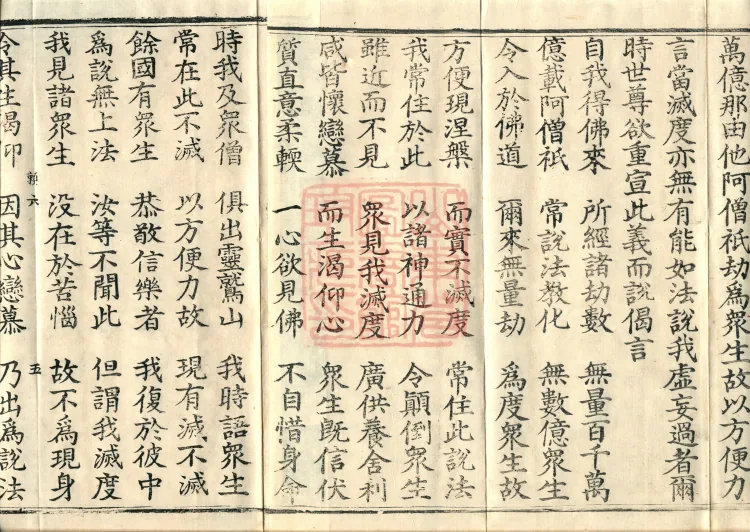 萬億那由他阿僧祇劫爲衆生故以方便力
言當滅度亦無有能如法說我虛妄過者爾
時世尊欲重宣此義而說偈言
自我得佛來 所經諸劫數 無量百千萬
億載阿僧祇 常說法教化 無數億衆生
令入於佛道 爾來無量劫 爲度衆生故
方便現涅槃 而實不滅度 常住此說法
我常住於此 以諸神通力 令顚倒衆生
雖近而不見 衆見我滅度 廣供養舍利
咸皆懷戀慕 而生渴仰心 衆生旣信伏
質直意柔輭 一心欲見佛 不自惜身命
時我及衆僧 俱出靈鷲山 我時語衆生
常在此不滅 以方便力故 現有滅不滅
餘國有衆生 恭敬信樂者 我復於彼中
爲說無上法 汝等不聞此 但謂我滅度
我見諸衆生 没在於苦惱 故不爲現身
六 五
令其生渴仰 因其心戀慕 乃出爲說法